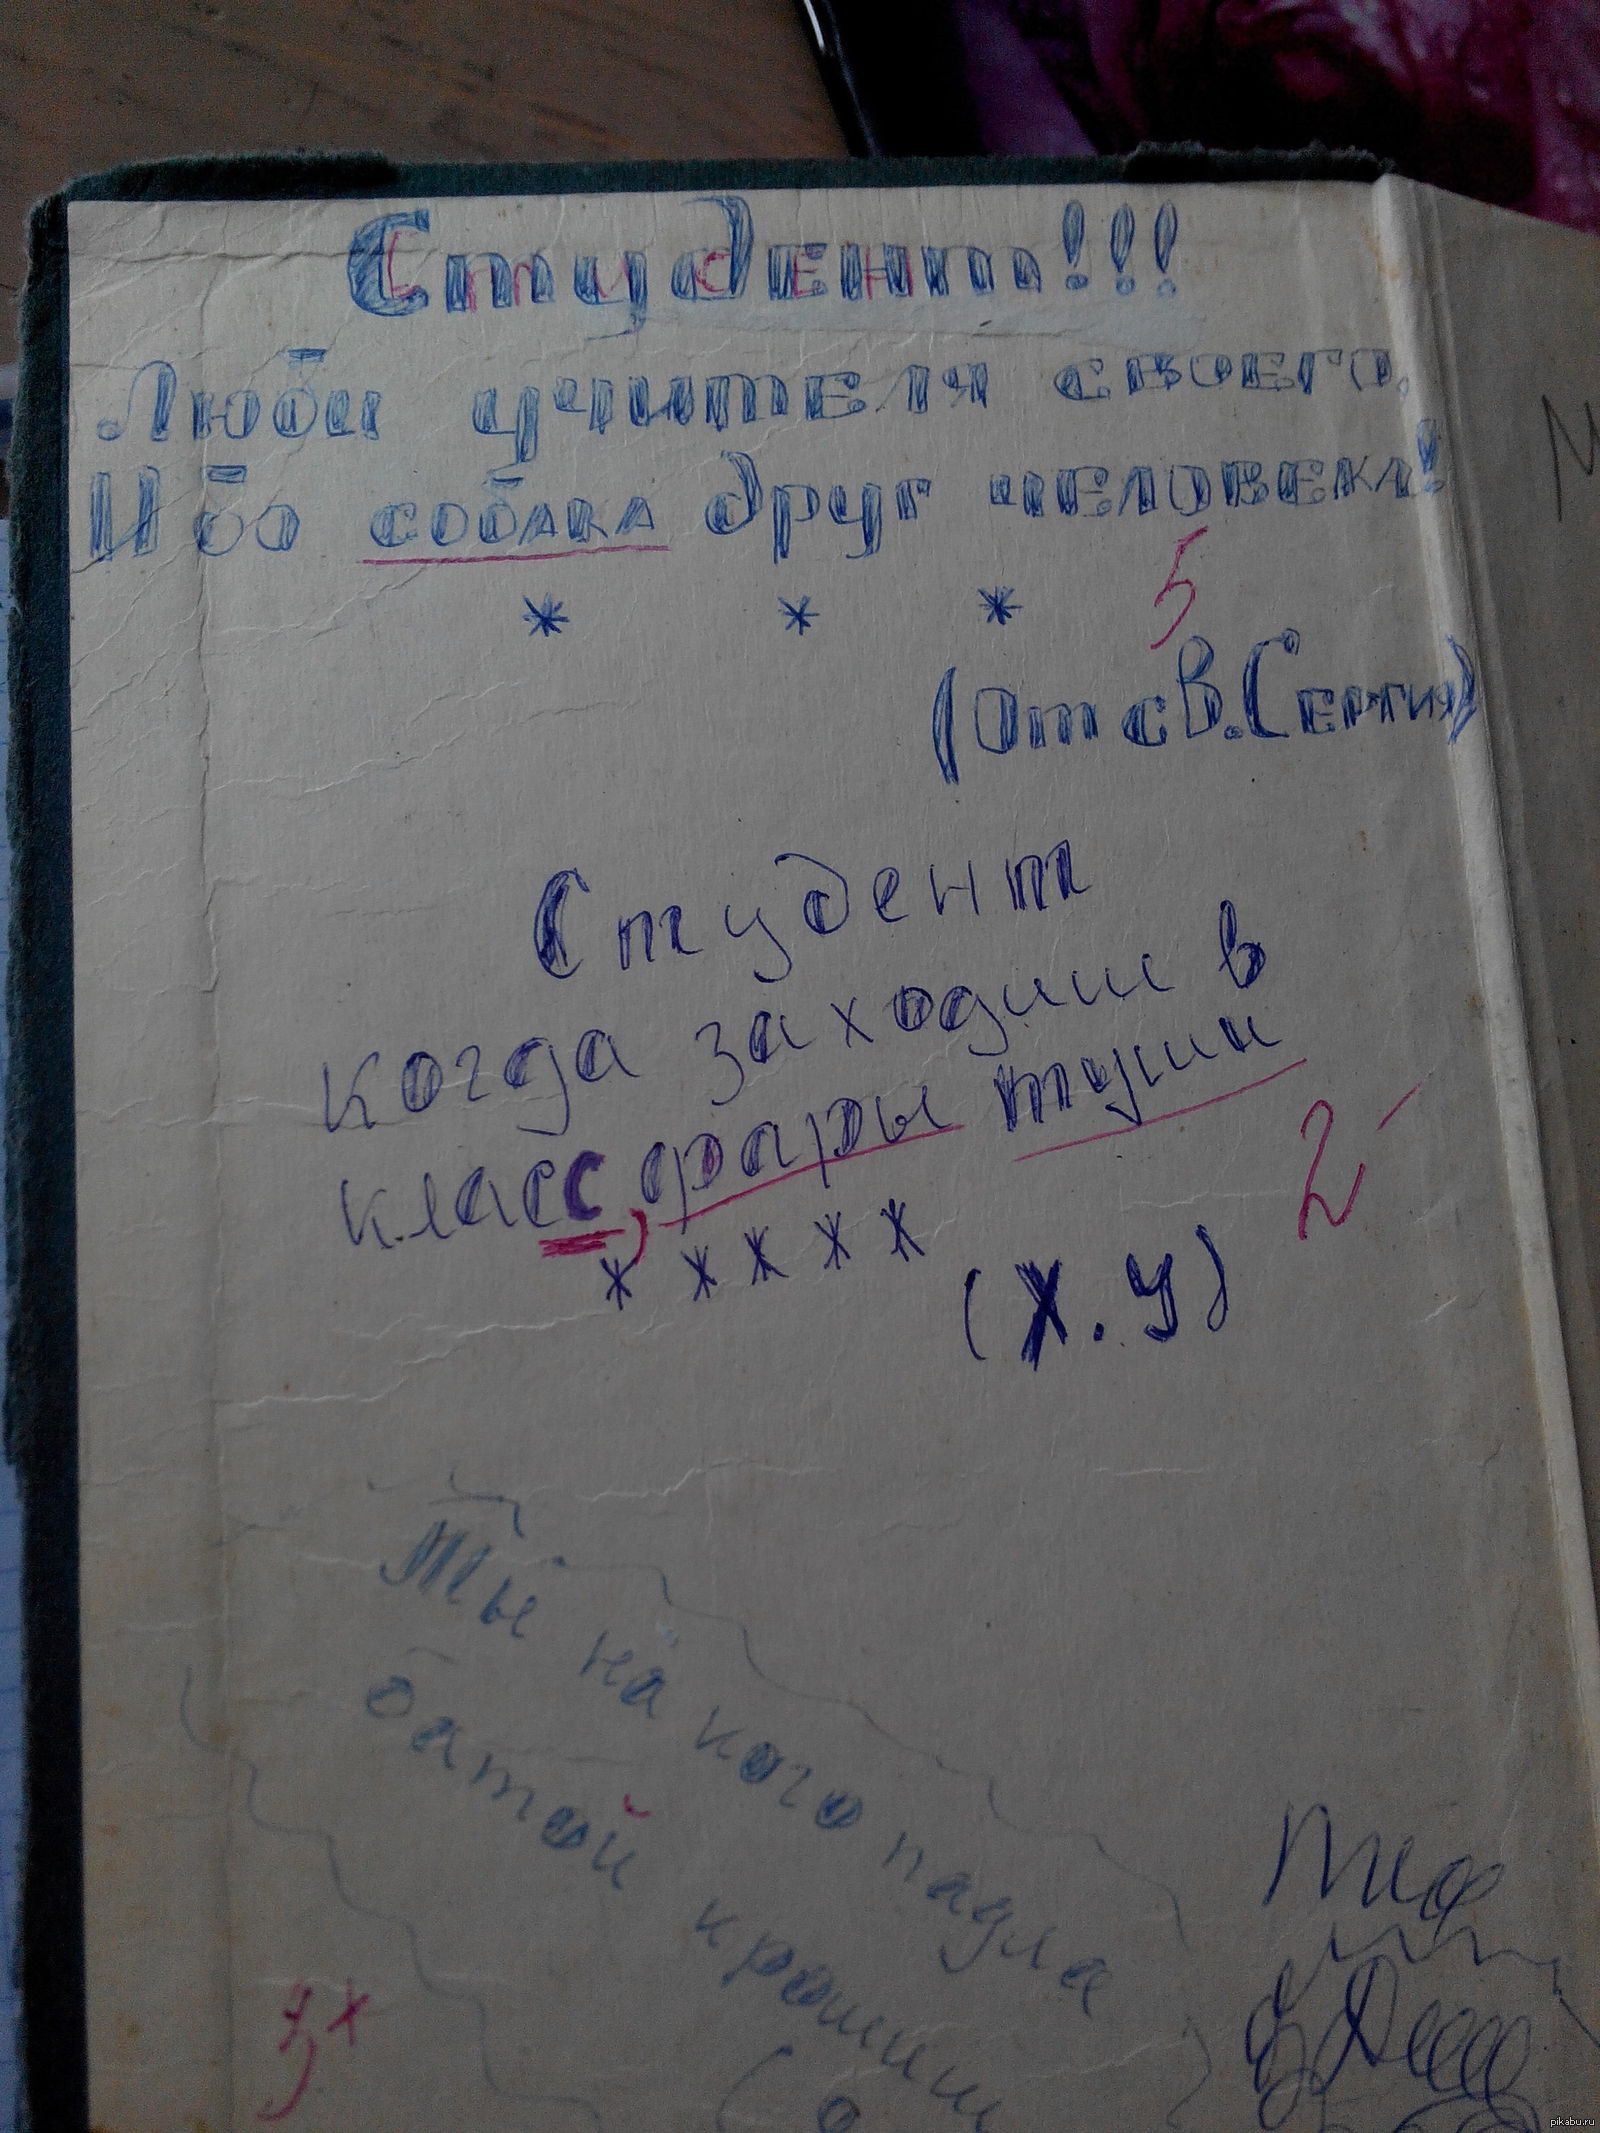 Студент!!!
Люби учителя своего,
Ибо собака друг человека!
* * * 5
(От св. Сергия)
Студент
когда заходиш в
класс, фары туши
2-
* * * * *
(Х.У)
Ты на кого падла
батой крошиш
3+
pikabu.ru